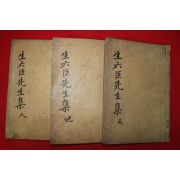 生六臣先生集 天
生六臣先生集 地
生六臣先生集 人